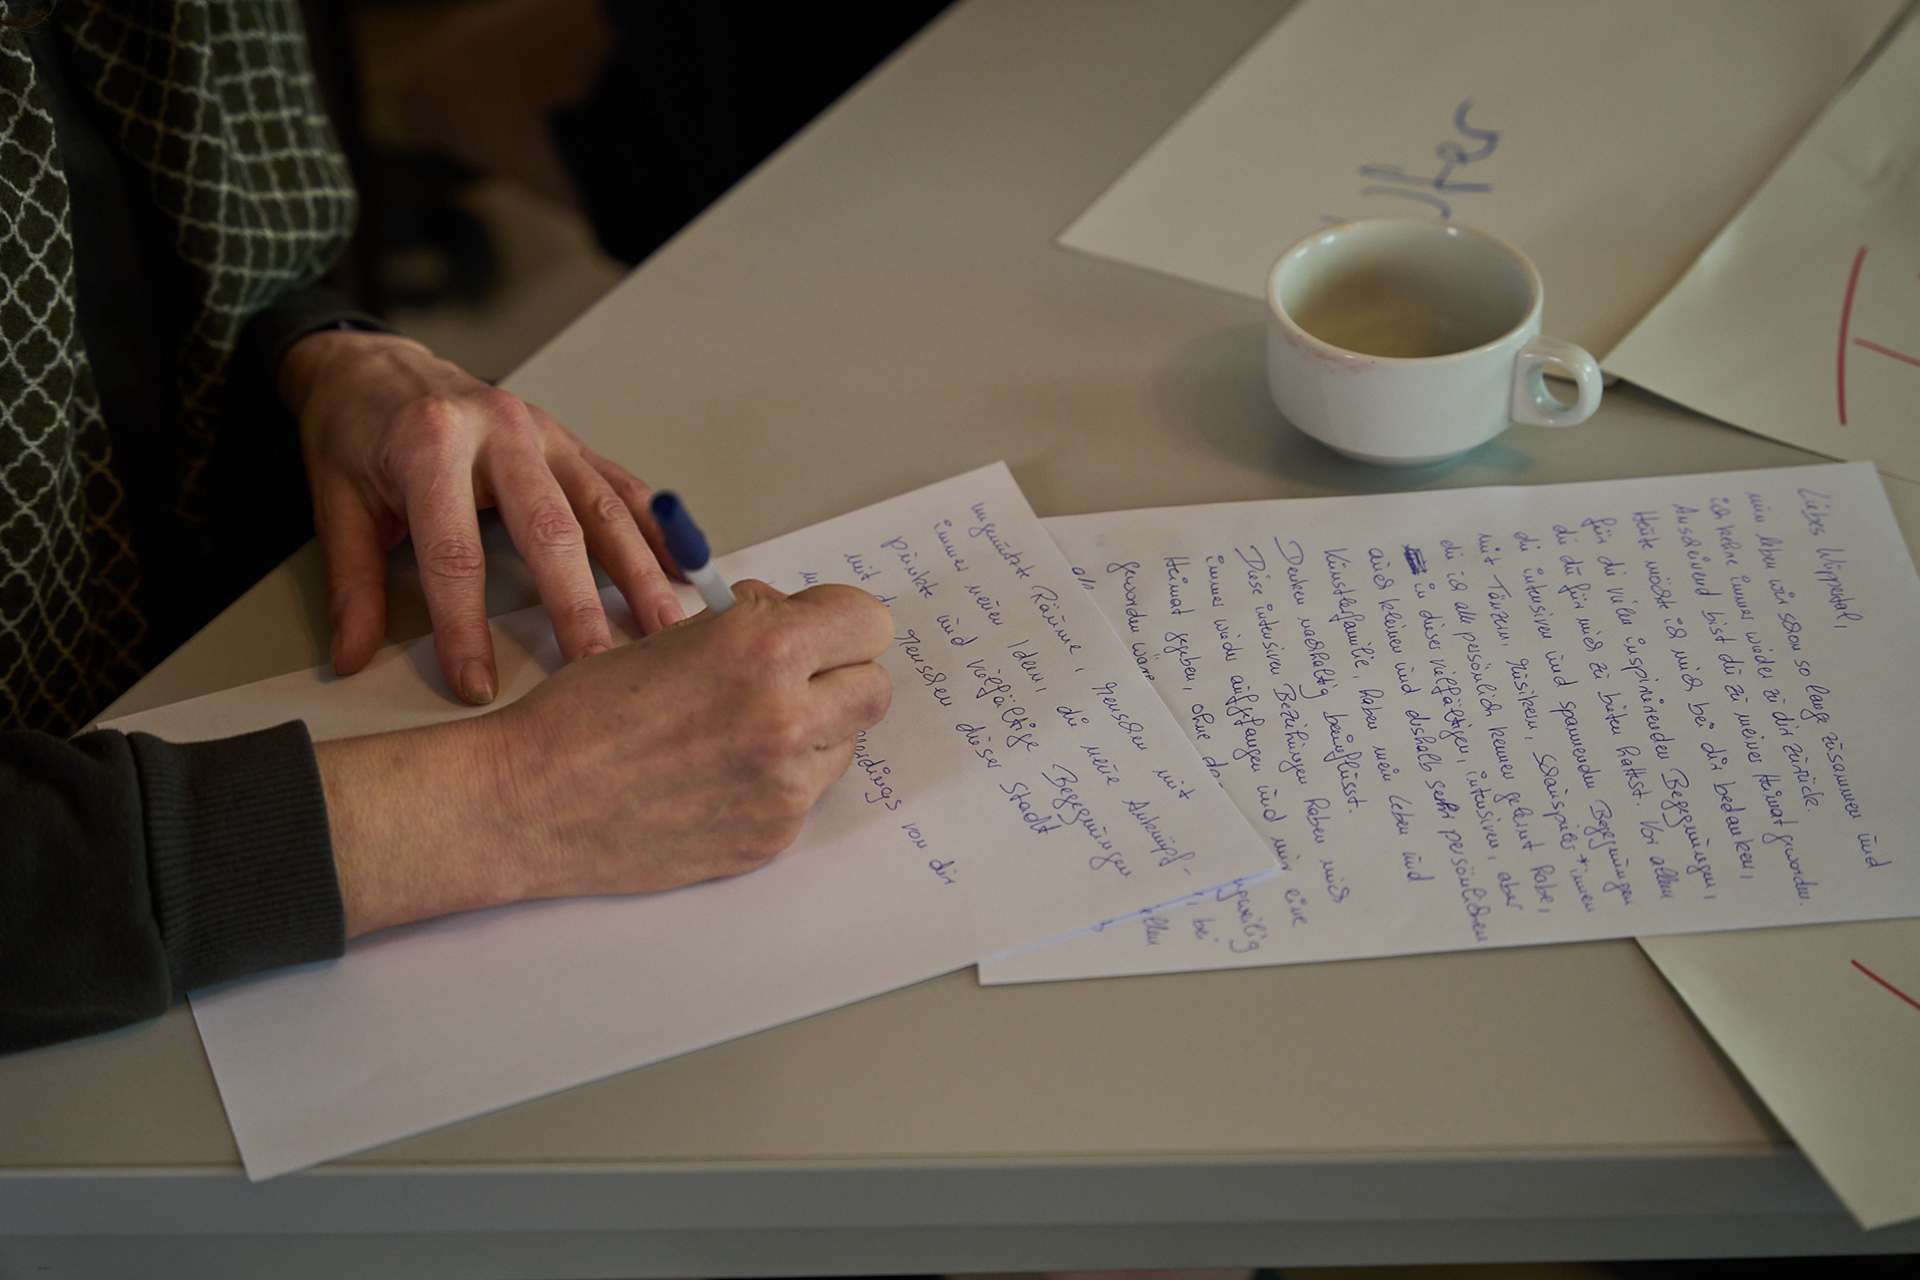 Liebes Wuppertal,
nun leben wir schon so lange zusammen und
ich kehre immer wieder zu dir zurück.
Anscheinend bist du zu meiner Heimat geworden.
Heute möchte ich mich bei dir bedanken,
für die vielen inspirierenden Begegnungen,
die du für mich zu bieten hattest. Vor allem
die intensiven und spannenden Begegnungen
mit Tänzern, Musikern, Schauspieler*innen
die ich alle persönlich kennen gelernt habe,
in dieser vielfältigen, intensiven, aber
auch kleinen und deshalb sehr persönlichen
Künstlerfamilie, haben mein Leben und
Denken nachhaltig beeinflusst.
Diese intensiven Beziehungen haben mich
immer wieder aufgefangen und mir eine
Heimat gegeben, ohne
geworden wäre
bei
ungenutzte Räume, Menschen mit
immer neuen Ideen, die neue Anknüpf-
punkte und vielfältige Begegnungen
mit Menschen dieser Stadt
von dir